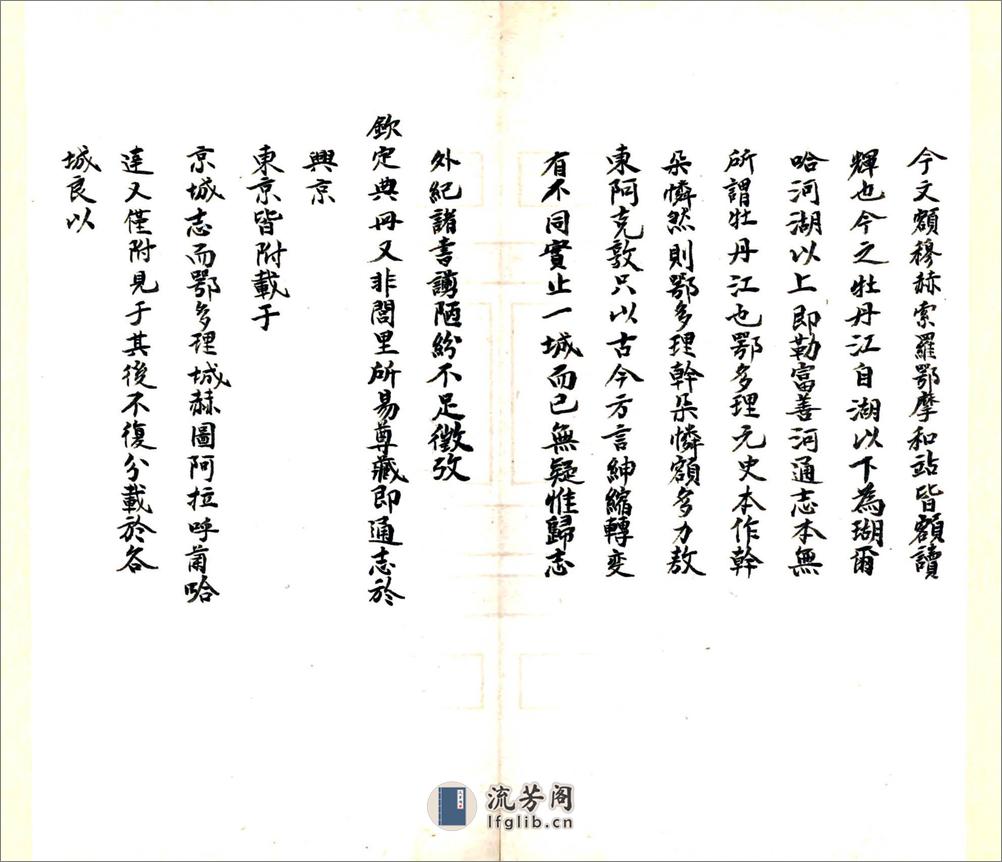 今文額穆赫索羅鄂摩和站皆額讀
輝也今之牡丹江自湖以下為瑚爾
哈河湖以上即勒富善河通志本無
所謂牡丹江也鄂多理元史本作幹
朵憐然則鄂多理幹朵憐額多力敖
東阿克敦只以古今方言紳縮轉变
有不同實止一城而已無疑惟歸志
外紀諸書謭陋紛不足徵攷
欽定典冊又非閭里所易尊藏即通志於
興京
東京皆附載于
京城志而鄂多理城赫圖阿拉呼蘭哈
達又僅附見于其後不復分載於各
城良以
流芳阁
lfglib.cn